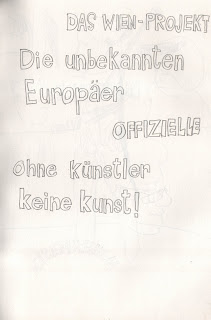 DAS WIEN-PROJEKT
Die unbekannten
Europäer
OFFIZIELLE
ohne künstler
keine kunst!